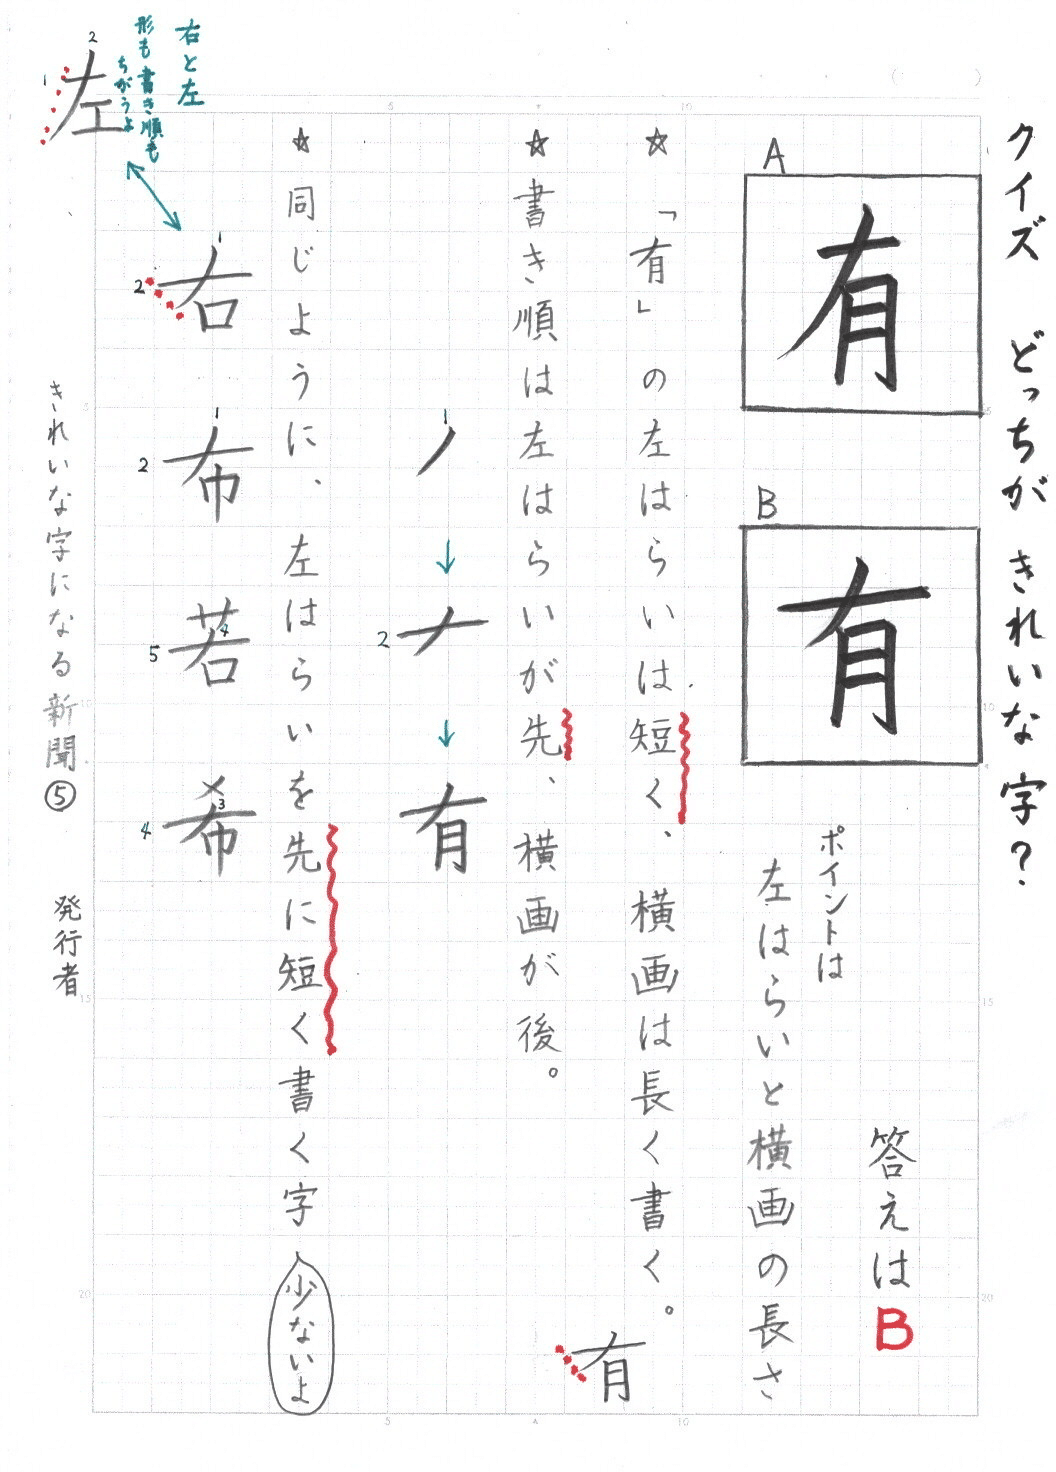 クイズ どっちが きれいな 字?
A
有
B
有
答えはB
ポイントは
左はらいと横画の長さ
☆「有」の左はらいは短く、横画は長く書く。
有
☆書き順は左はらいが先、横画が後。
1
ノ
↓
2
𠂇
↓
有
☆同じように、左はらいを先に短く書く字
少ないよ
1
2
右
1
2
布
4
5
若
3
4
希
右と左
形も書き順も
ちがうよ
1
2
左
きれいな字になる新聞⑤ 発行者